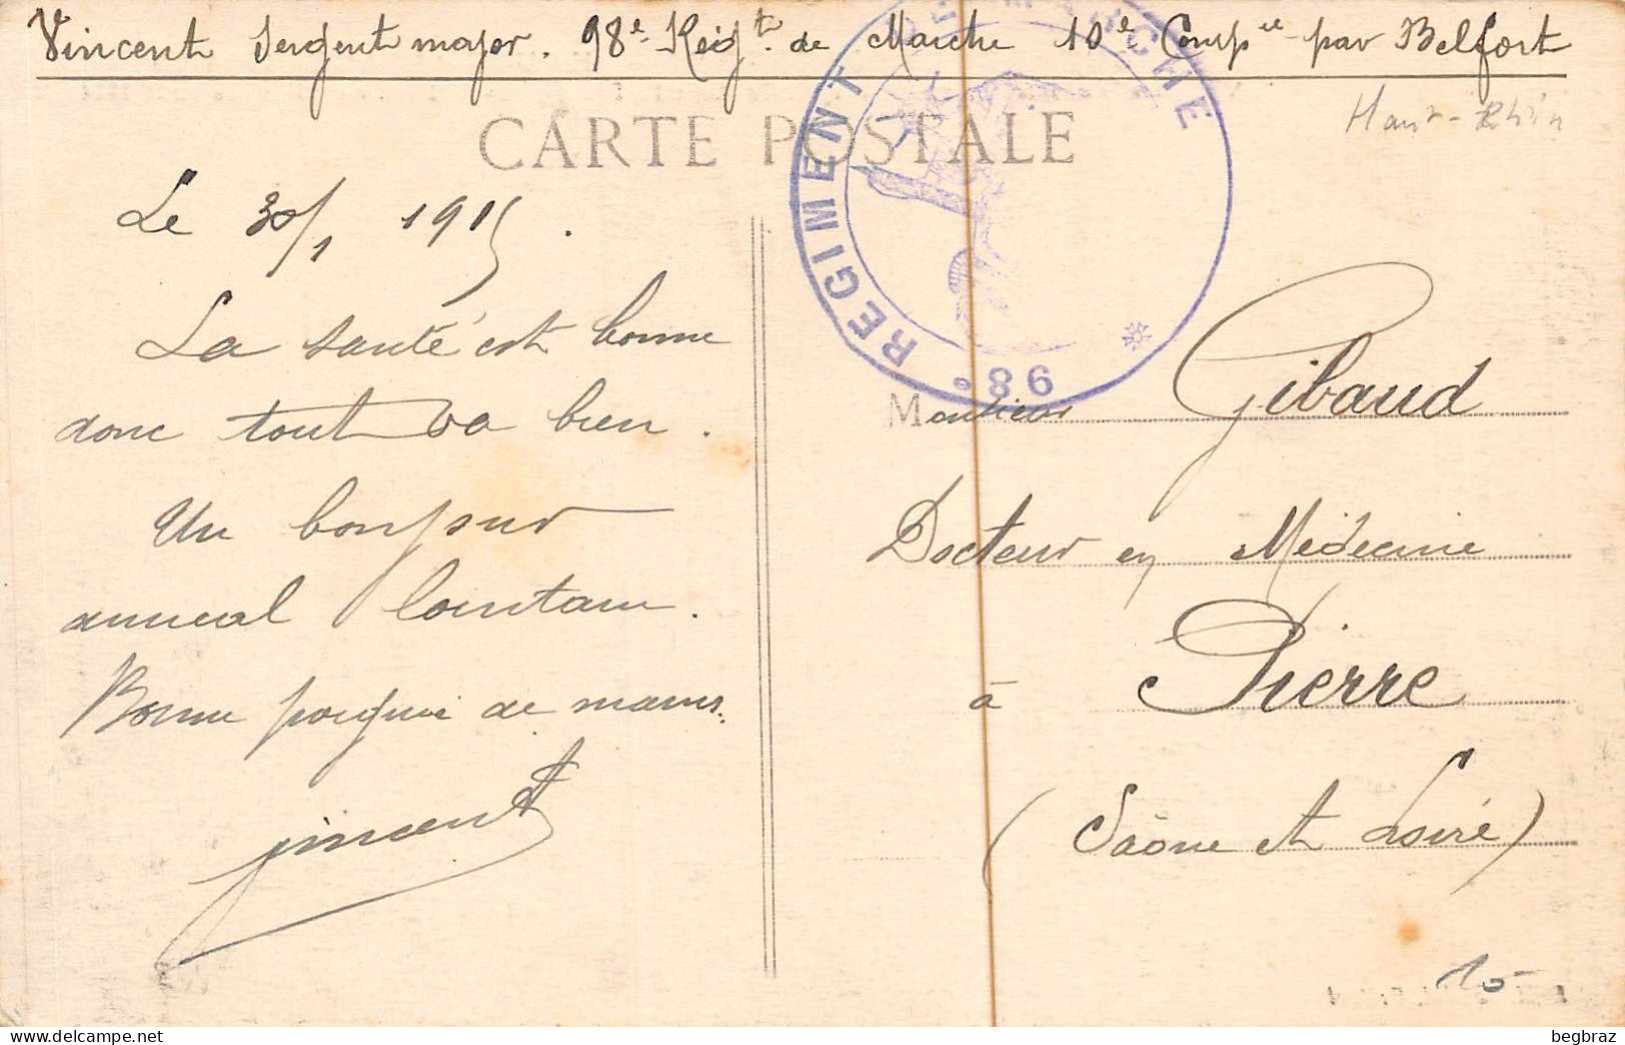 Vincent Sergent major. 98e Regt. de Marche 10e Compie par Belfort
Haut-Rhin
CARTE POSTALE
98e REGIMENT DE MARCHE
Le 30/1 1915.
La santé est bonne
donc tout va bien.
Un bonjour
amical lointain.
Bonne poignée de mains.
Vincent
Monsieur Gibaud
Docteur en Médecine
à Pierre
(Saône et Loire)
10
begbraz